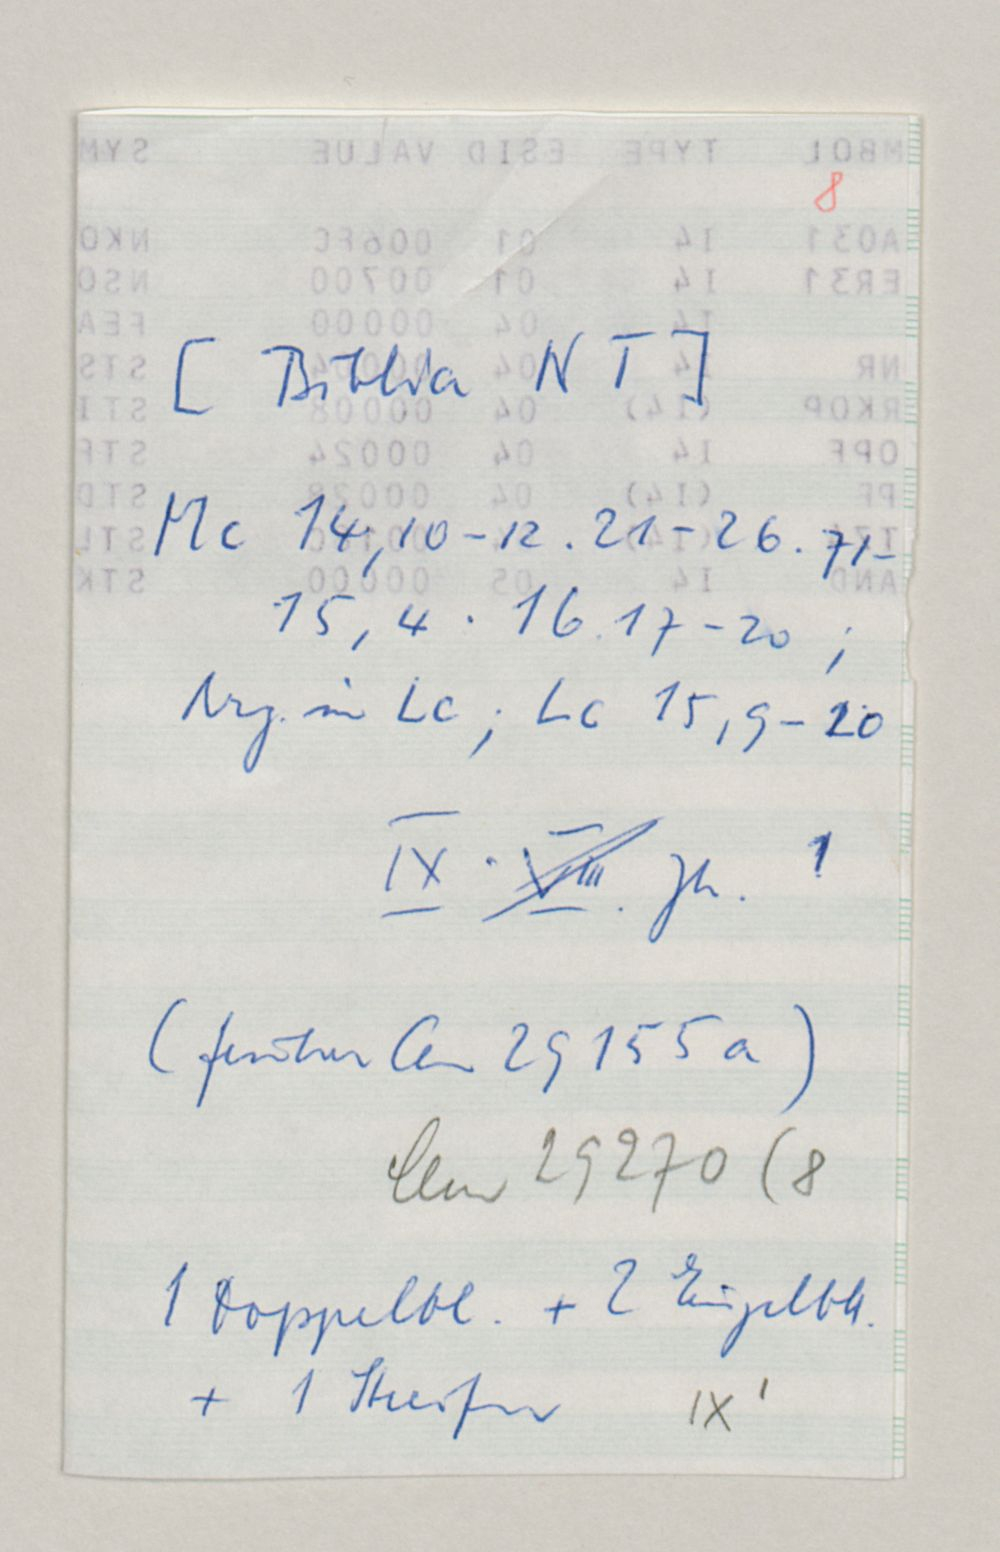 8
[Biblia NT]
Mc 14,10-12. 21-26. 71-
15,4. 16. 17-20;
Arg. in Lc; Lc 15,9-20
IX. VIII. Jh. 1
(früher Clm 29155a)
Clm 29270(8
1 Doppelbl. + 2 Einzelbll.
+ 1 Streifen IX¹